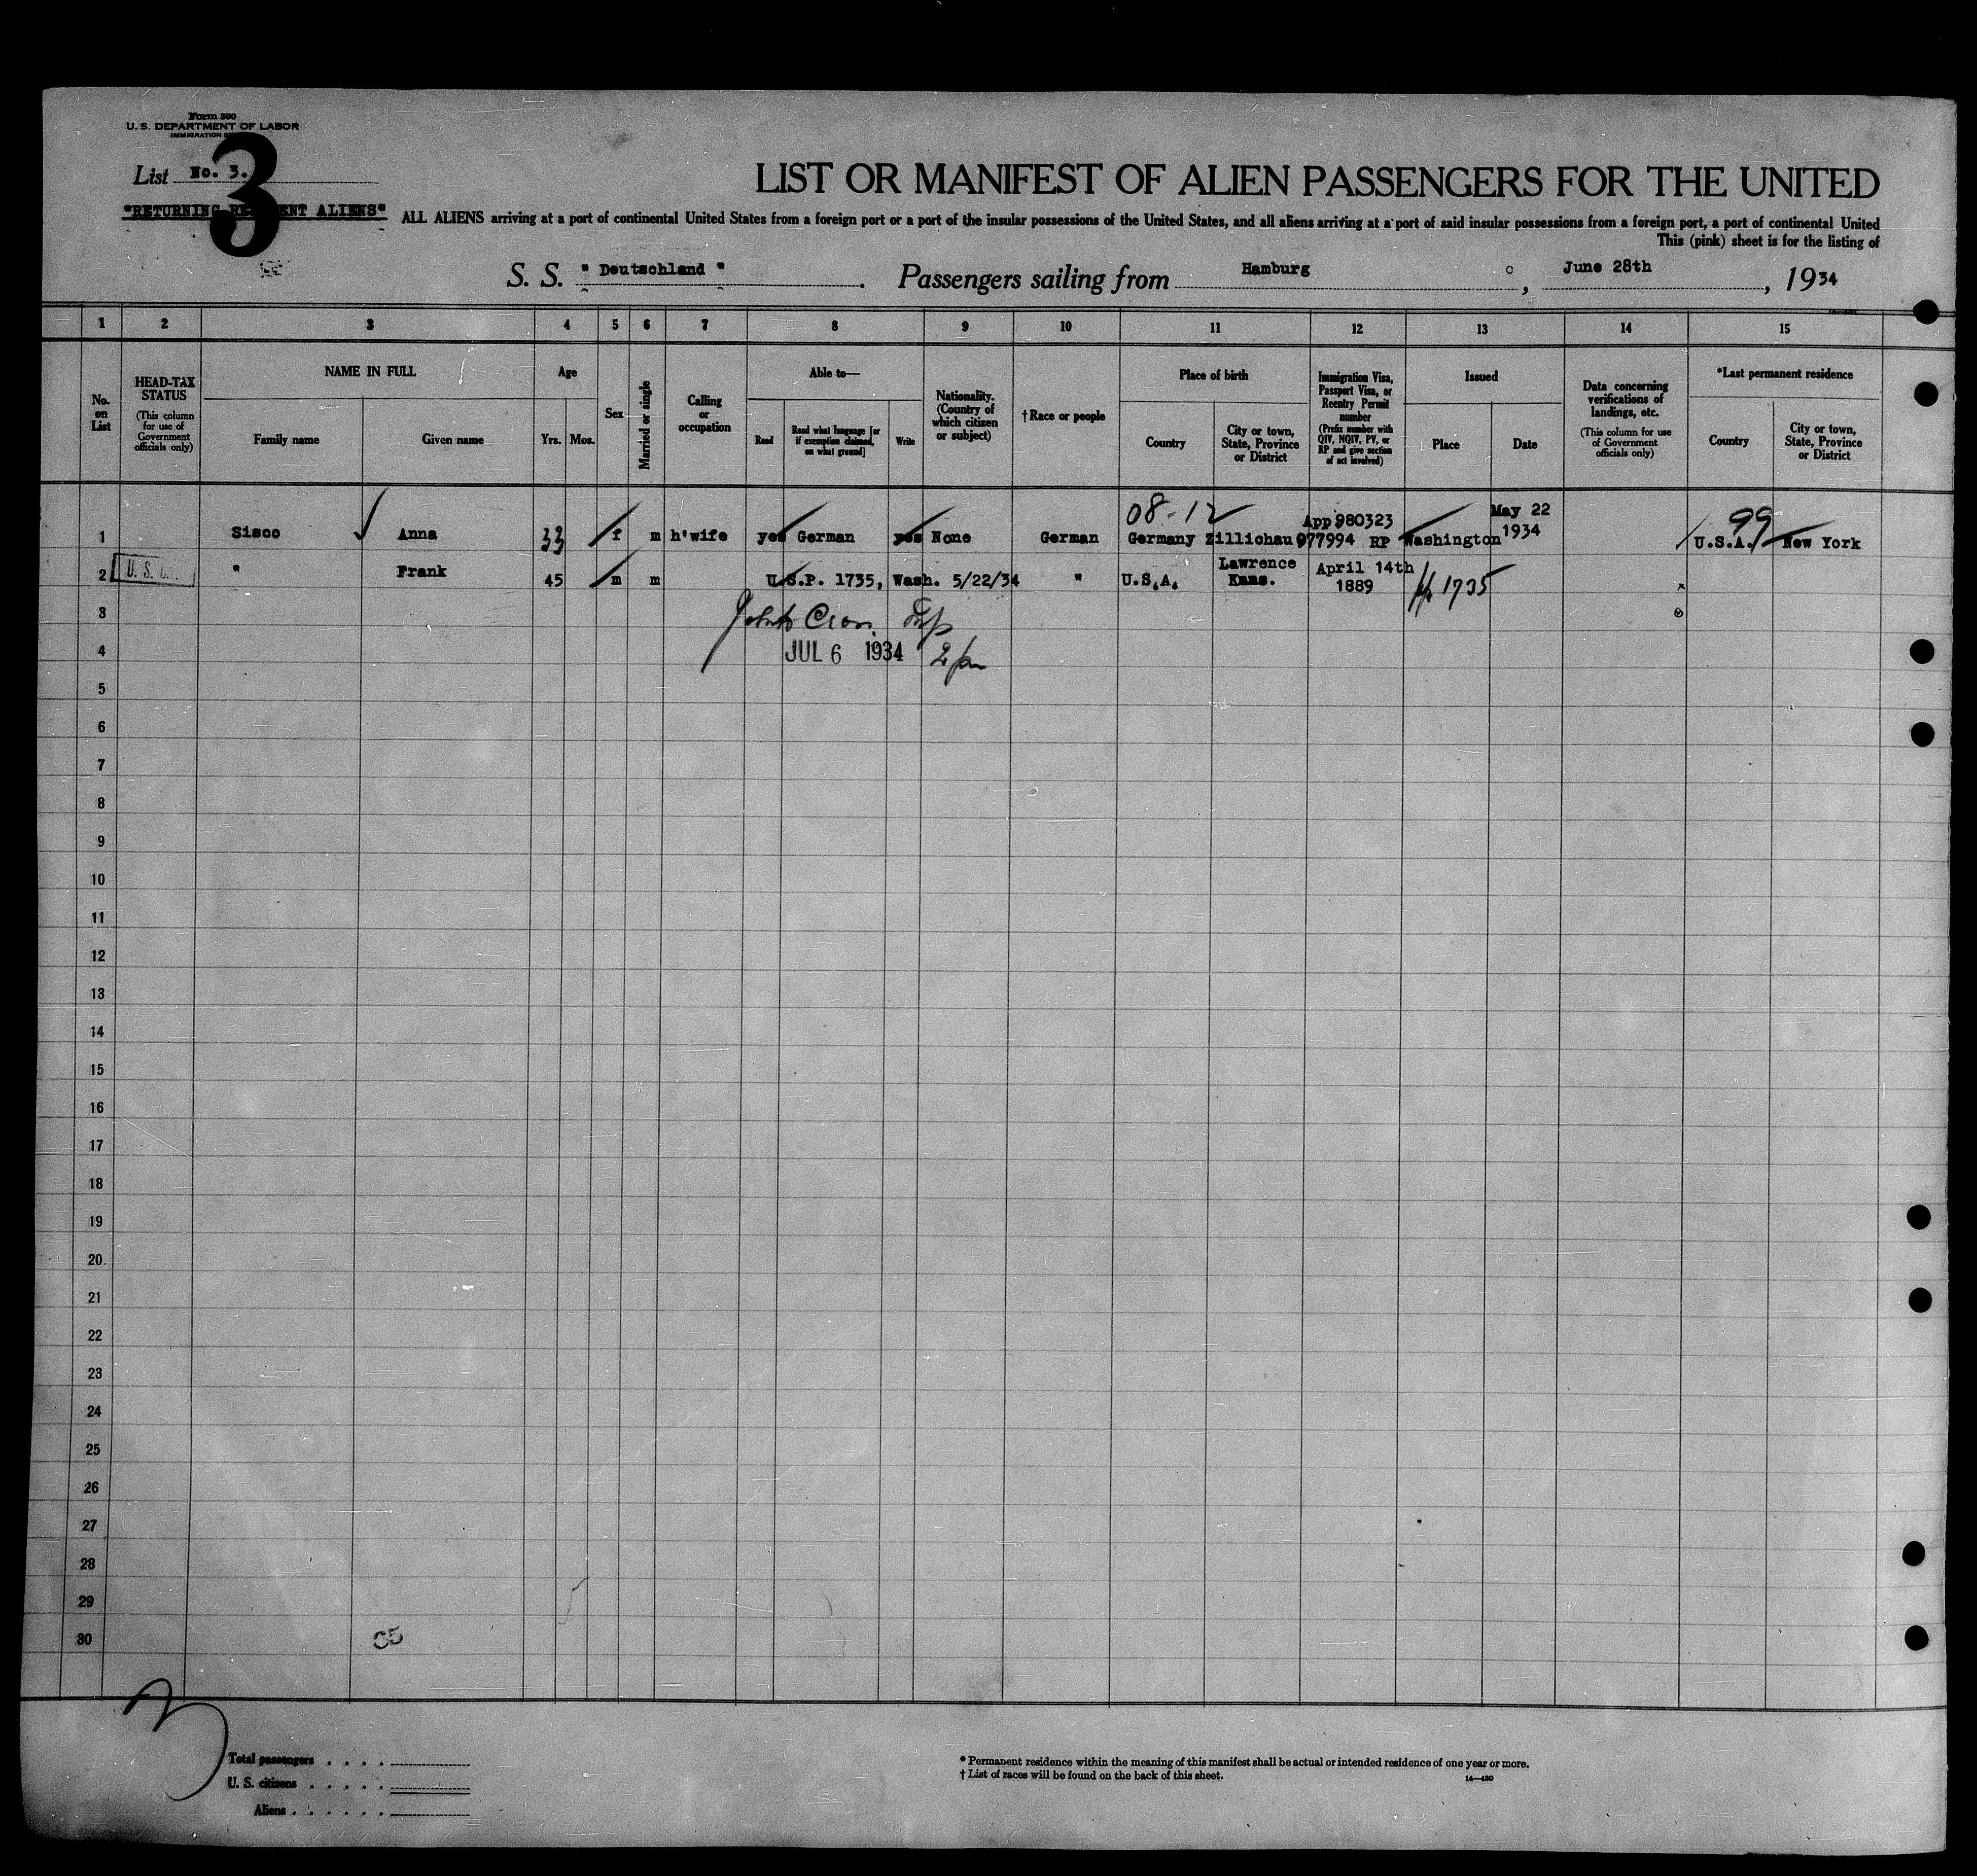 Form 500
U. S. DEPARTMENT OF LABOR
IMMIGRATION
List No. 3.
3
"RETURNING RESIDENT ALIENS"
LIST OR MANIFEST OF ALIEN PASSENGERS FOR THE UNITED
ALL ALIENS arriving at a port of continental United States from a foreign port or a port of the insular possessions of the United States, and all aliens arriving at a port of said insular possessions from a foreign port, a port of continental United
This (pink) sheet is for the listing of
S. S. " Deutschland ". Passengers sailing from Hamburg, June 28th, 1934
1 2 3 4 5 6 7 8 9 10 11 12 13 14 15
No. on List
HEAD-TAX STATUS
(This column for use of Government officials only)
NAME IN FULL
Family name Given name
Age
Yrs. Mos.
Sex
Married or single
Calling or occupation
Able to—
Read
Read what language [or if exemption claimed, on what ground]
Write
Nationality. (Country of which citizen or subject)
† Race or people
Place of birth
Country
City or town, State, Province or District
Immigration Visa, Passport Visa, or Reentry Permit number
(Prefix number with QIV, NQIV, PV, or RP and give section of act involved)
Issued
Place Date
Data concerning verifications of landings, etc.
(This column for use of Government officials only)
*Last permanent residence
Country
City or town, State, Province or District
08-12 App 980323 May 22 99
1 Sisco Anna 33 f m h'wife yes German yes None German Germany Zillichau 977994 RP Washington 1934 U.S.A. New York
2 U. S. " Frank 45 m m U.S.P. 1735, Wash. 5/22/34 " U.S.A. Lawrence Kans. April 14th 1889 1735
3
4 JUL 6 1934 2 pm
5
6
7
8
9
10
11
12
13
14
15
16
17
18
19
20
21
22
23
24
25
26
27
28
29
30
Total passengers . . . .
U. S. citizens . . . . .
Aliens . . . . . .
* Permanent residence within the meaning of this manifest shall be actual or intended residence of one year or more.
† List of races will be found on the back of this sheet.
14—430